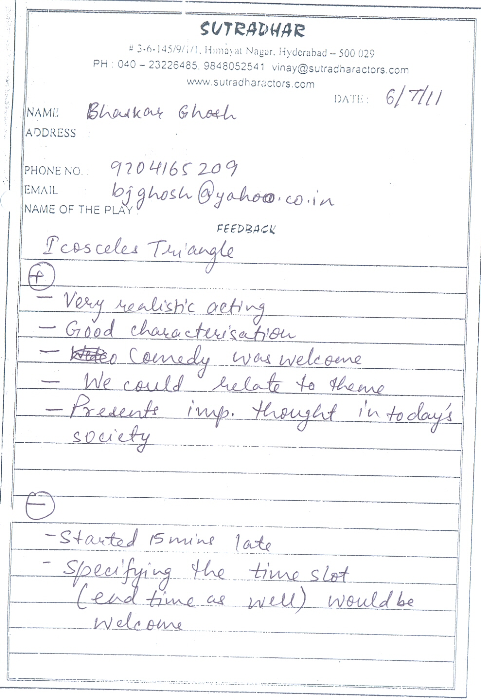 SUTRADHAR
# 3-6-145/9/1/1, Himayat Nagar, Hyderabad – 500 029
PH : 040 – 23226485, 9848052541 vinay@sutradharactors.com
www.sutradharactors.com
DATE : 6/7/11
NAME Bhaskar Ghosh
ADDRESS
PHONE NO. 9204165209
EMAIL bjghosh@yahoo.co.in
NAME OF THE PLAY
FEEDBACK
Icosceles Triangle
+
— Very realistic acting
— Good characterisation
— Comedy was welcome
— We could relate to theme
— Presents imp. thought in today's
society
−
- Started 15 mins late
- Specifying the time slot
(end time as well) would be
welcome